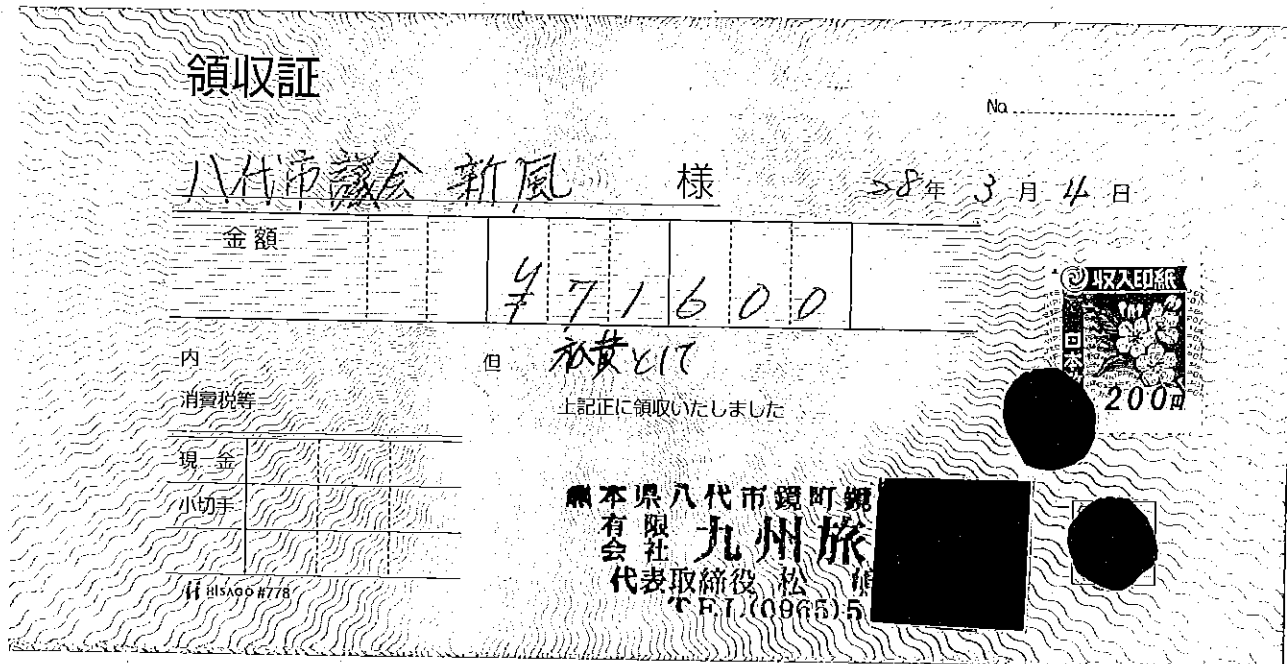 領収証
No.
八代市議会 新風 様
28年 3月 4日
金額
¥71600
内
但 旅費として
消費税等
上記正に領収いたしました
現金
小切手
収入印紙
日本
200円
熊本県八代市鏡町鏡
有限会社 九州旅
代表取締役 松
TEL(0965)5
HISAGO #778